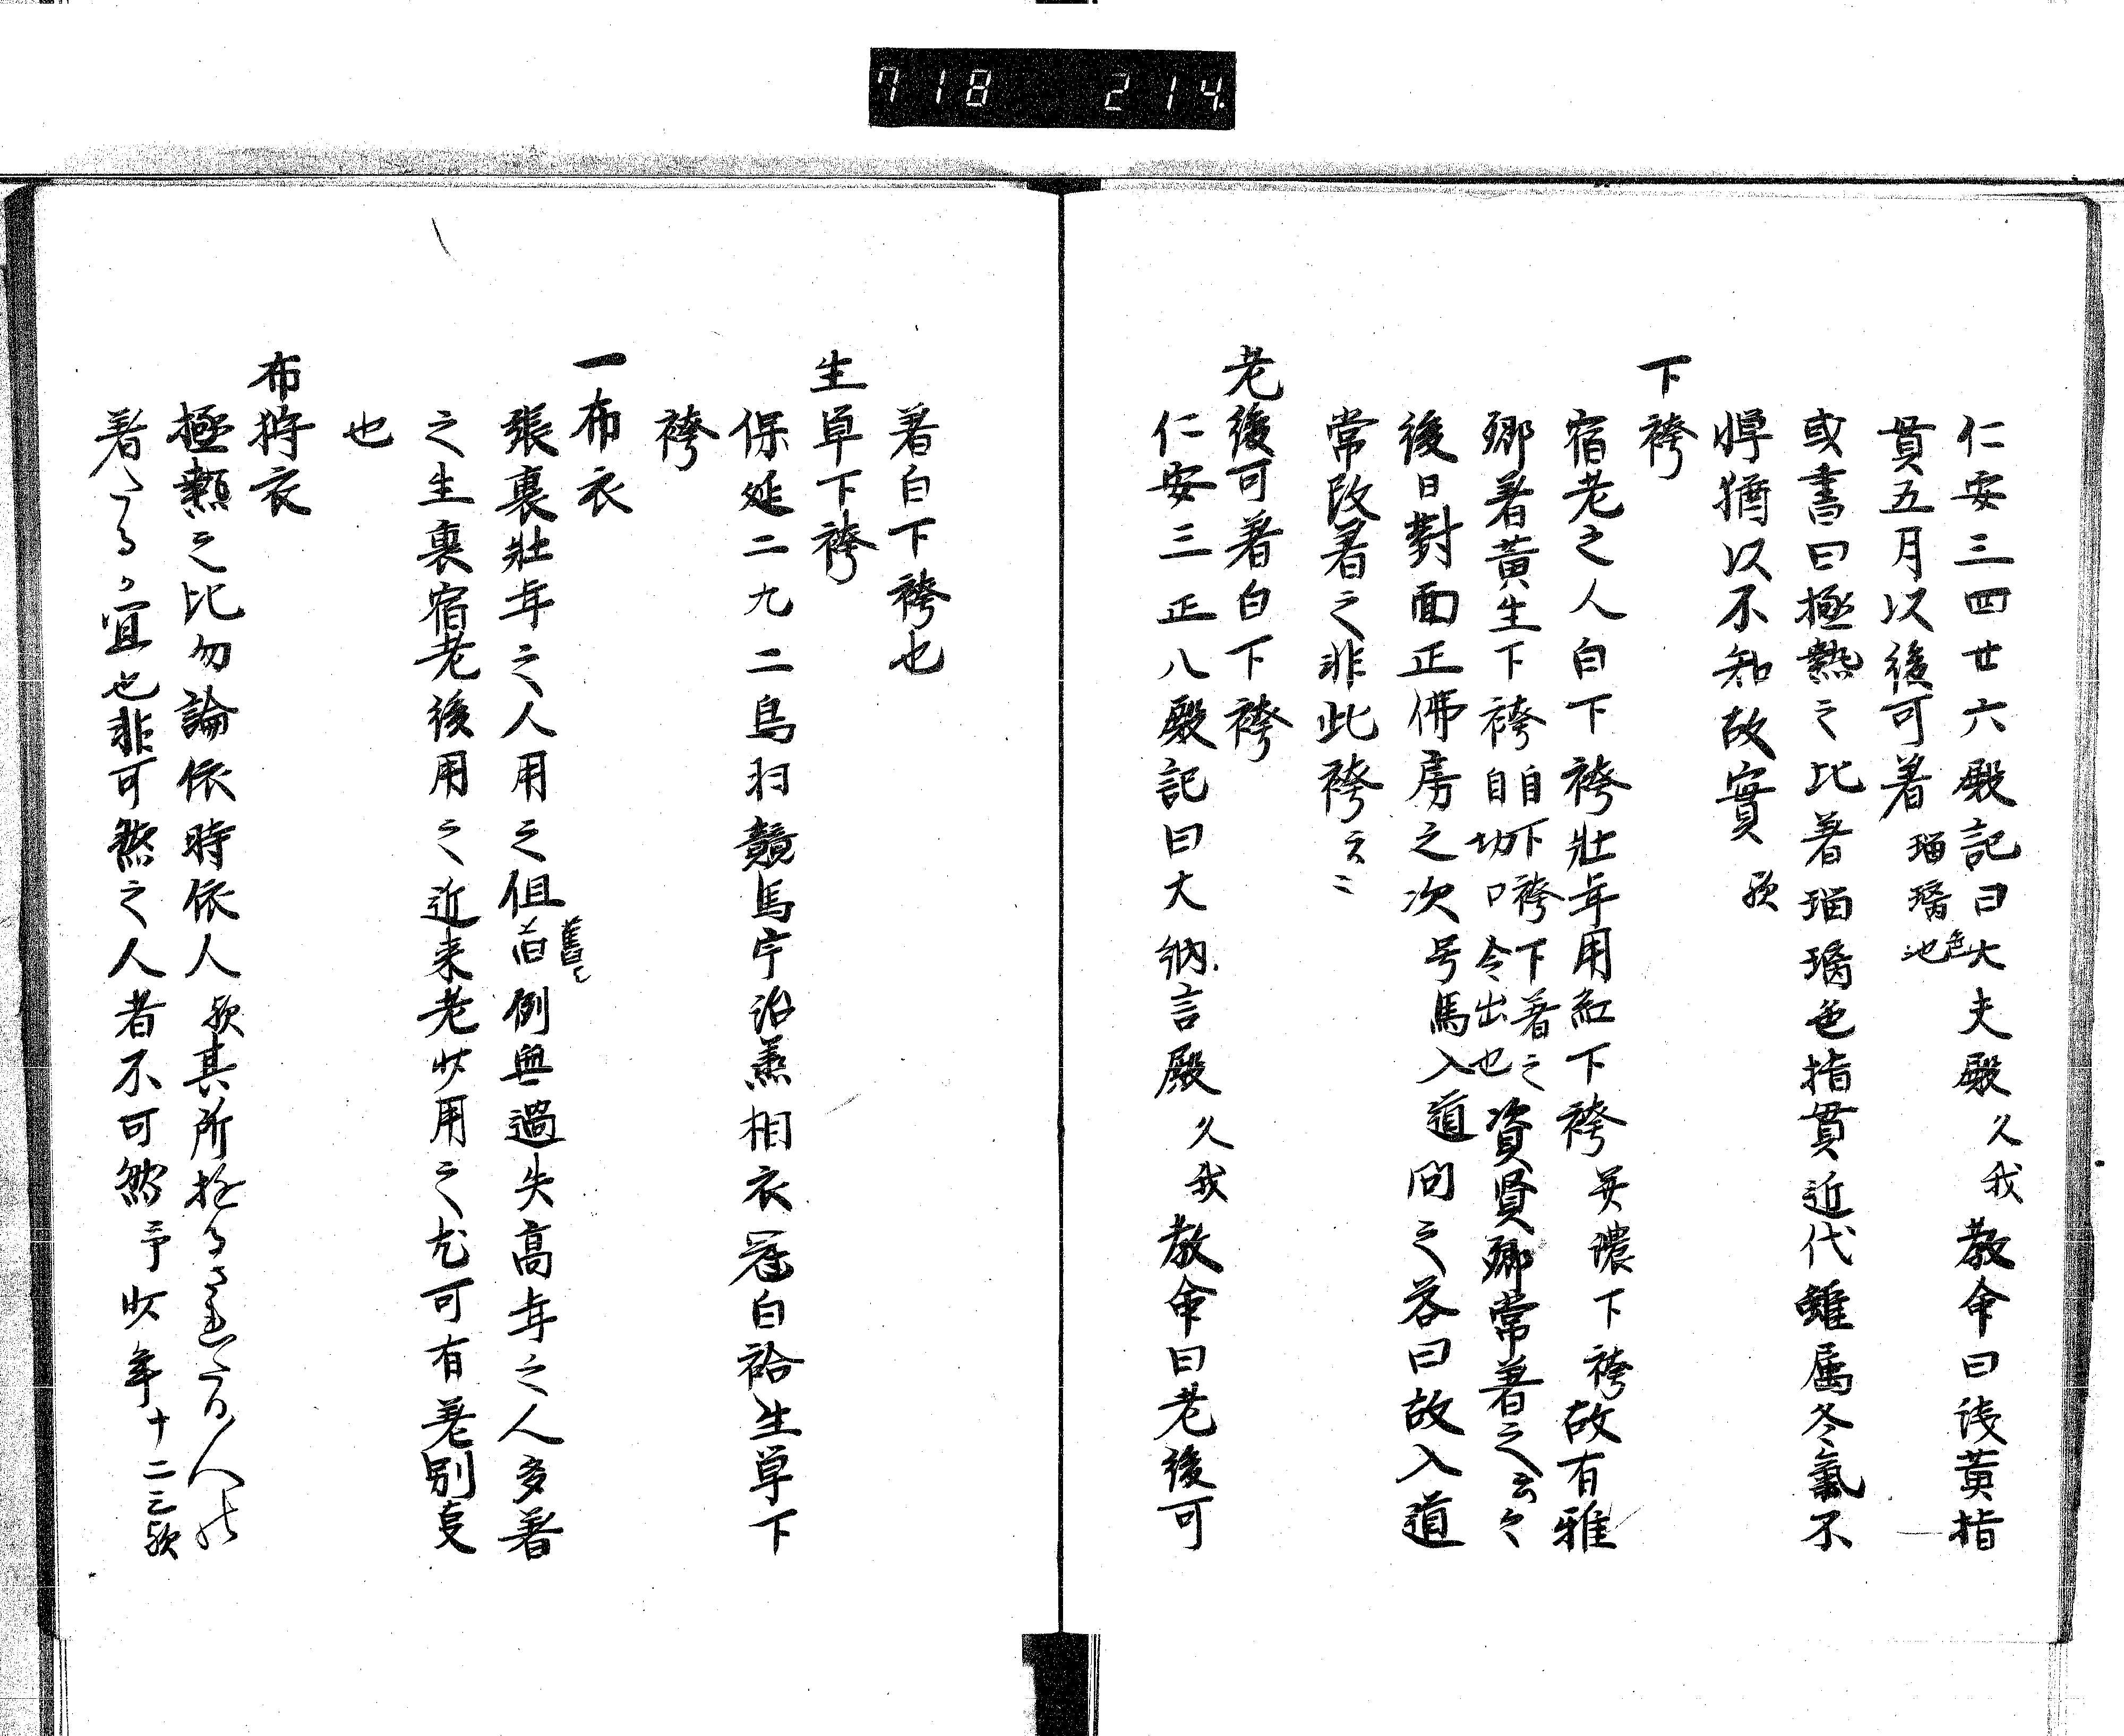 718 214.
仁安三四廿六殿記曰大夫殿久我教命曰浅黄指
貫五月以後可着瑠璃色也
或書曰極熱之比著瑠璃色指貫近代雖属冬氣不
憚猶以不知故實歟
下袴
宿老之人白下袴壯年用紅下袴英濃下袴故有雅
卿著黄生下袴自下袴下著之自切口令出也資賢卿常著之云々
後日對面正佛房之次号馬入道問之答曰故入道
常改著之非此袴云々
老後可著白下袴
仁安三正八殿記曰大納言殿久我教命曰老後可
著白下袴也
生単下袴
保延二九二鳥羽競馬宇治丞相衣冠白袷生単下
袴
一布衣
張裏壯年之人用之但旧例無過失高年之人多著
之生裏宿老後用之近来老少用之尤可有差別叓
也
布狩衣
極熱之比勿論依時依人歟其所
着たる宜也非可然之人者不可然予少年十二三歟